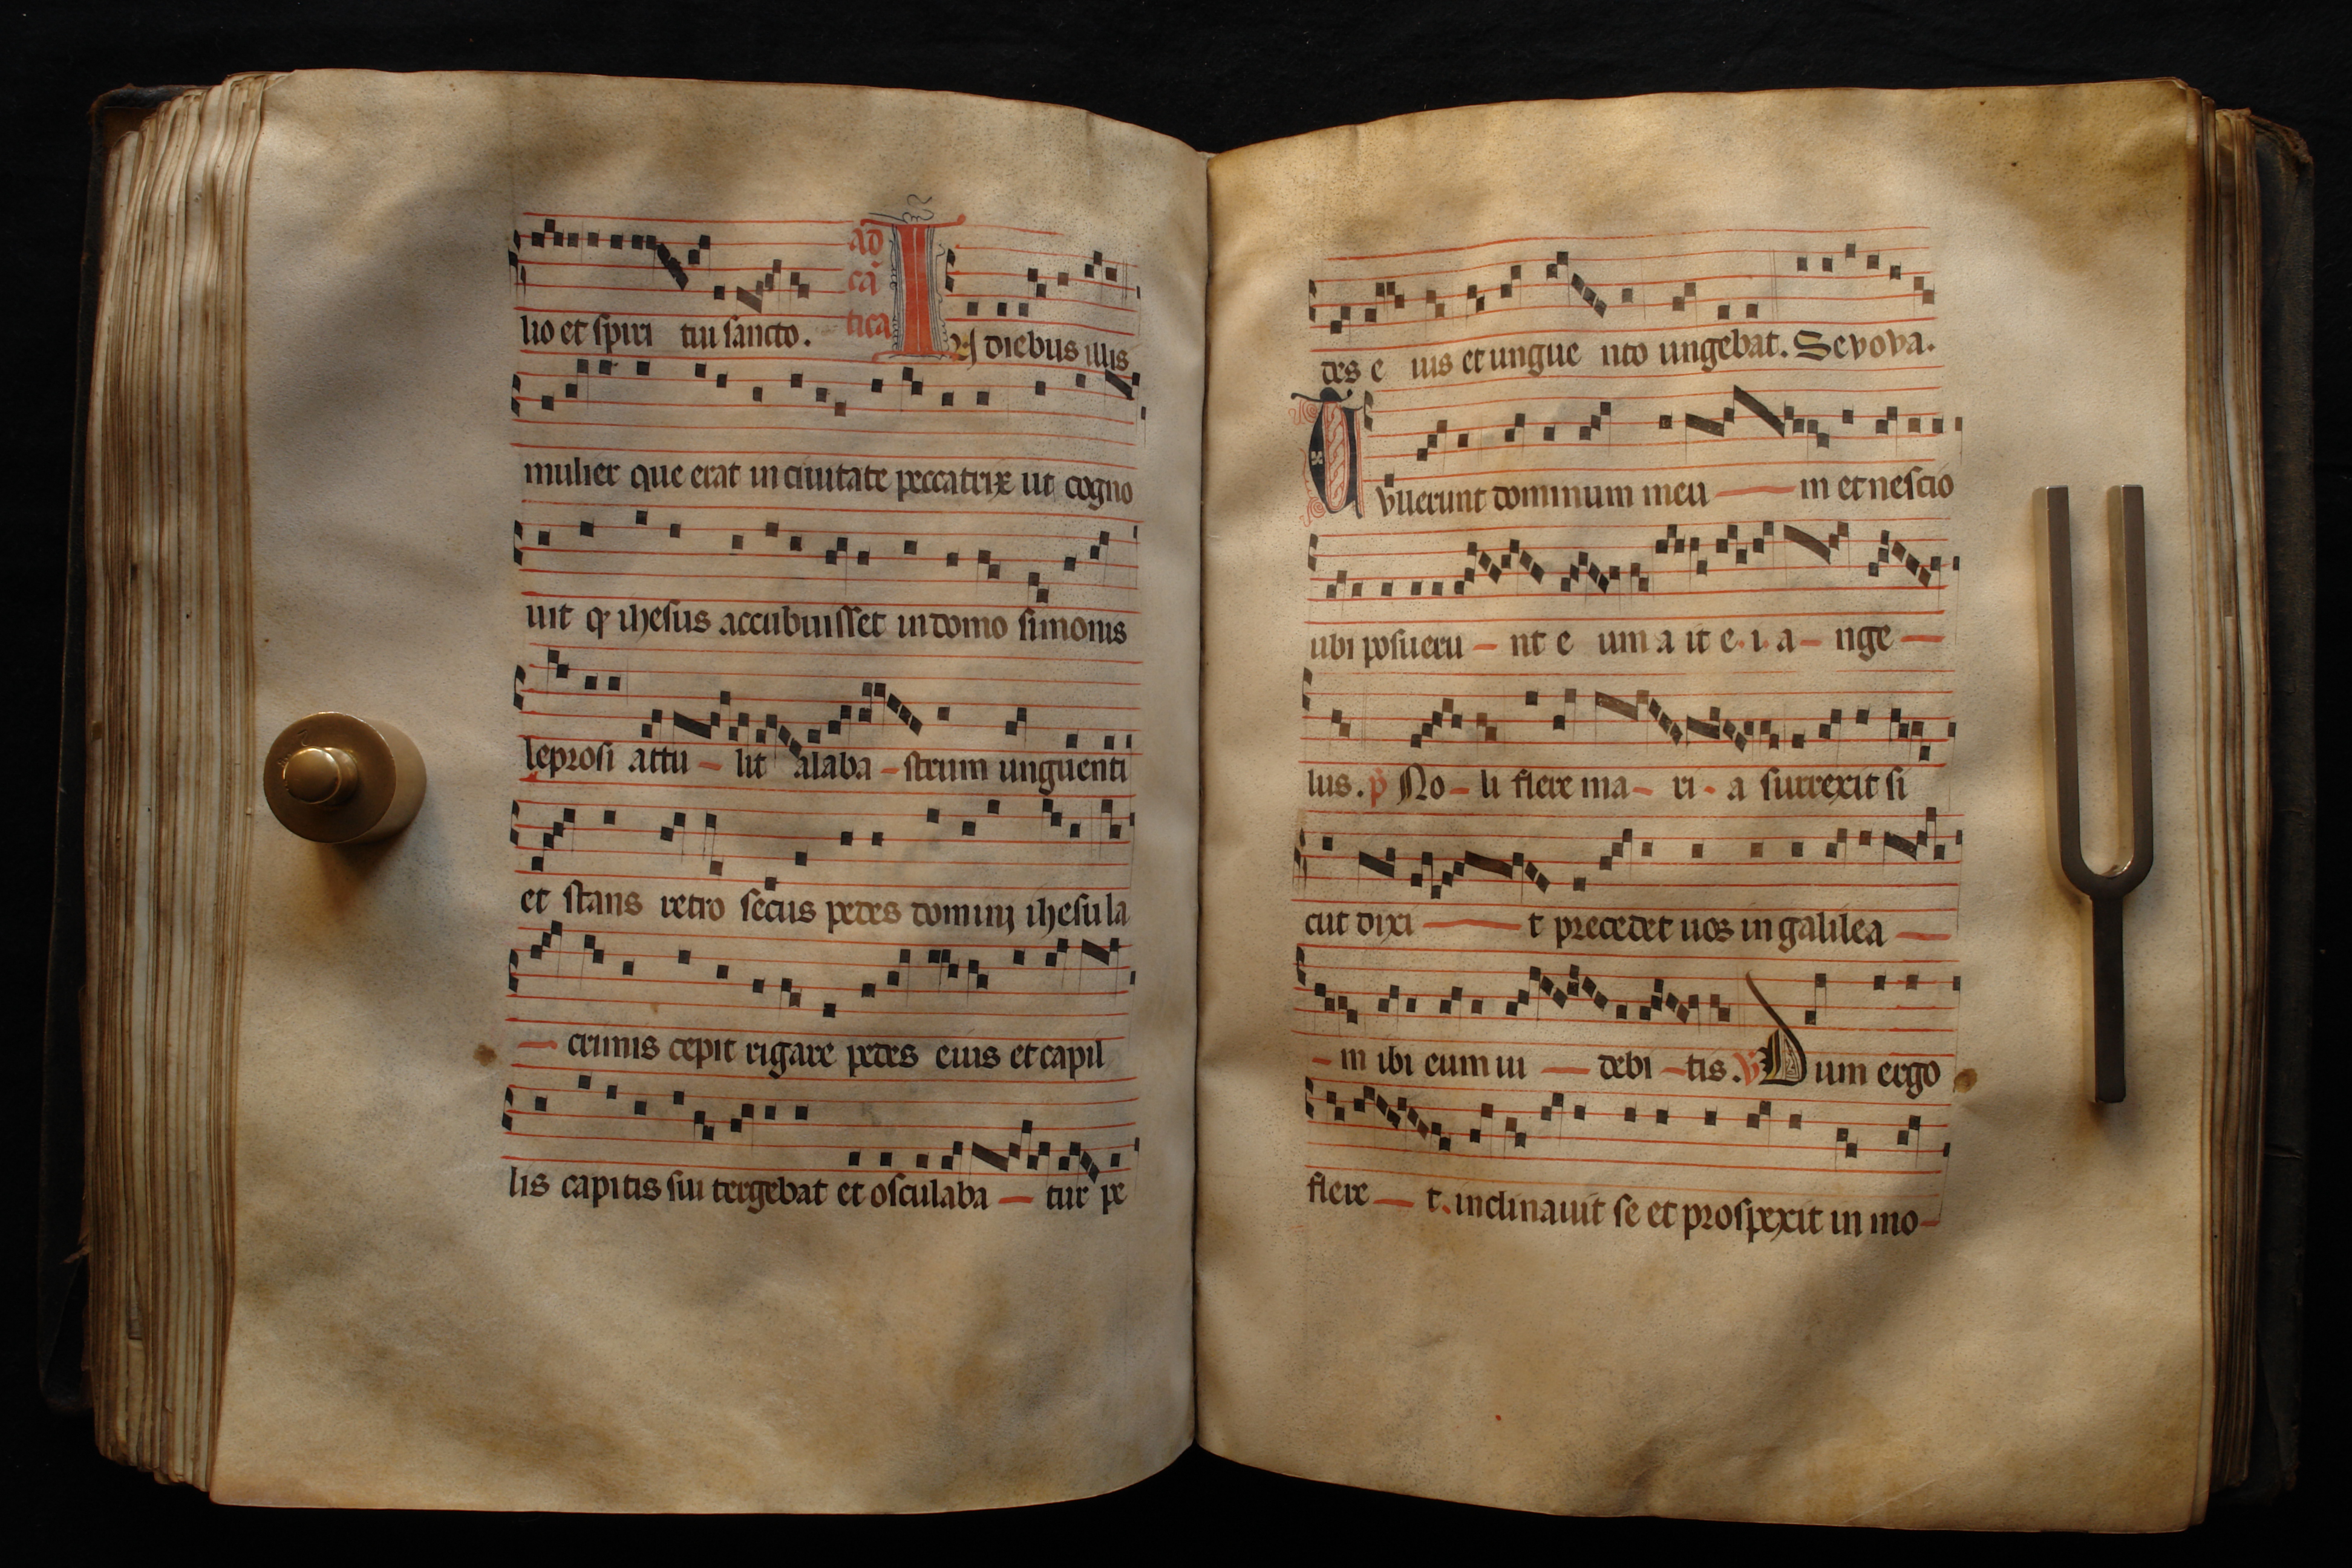 lio et spiri tui sancto. ad
cā
tica
In diebus illis
mulier que erat in ciuitate peccatrix ut cogno
uit qr ihesus accubuisset in domo simonis
leprosi attu – lit alaba – strum unguenti
et stans retro secus pedes domini ihesu la
– crimis cepit rigare pedes eius et capil
lis capitis sui tergebat et osculaba – tur pe
des e ius et ungue nto ungebat. Sevova.
Tvlerunt dominum meu — m et nescio
ubi posueru – nt e um a it e. i. a – nge —
lus. p No – li flere ma – ri – a surrexit si
cut dixi — t precedet uos in galilea —
– m ibi eum ui — debi – tis. V Dum ergo
flere — t. inclinauit se et prospexit in mo –